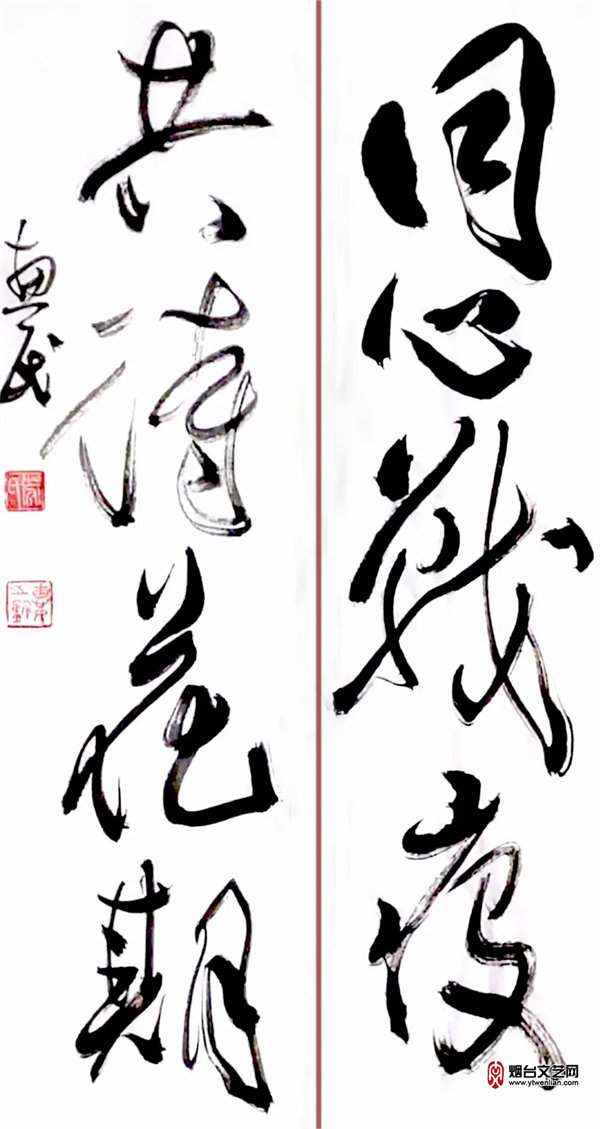 同心战疫
共待花期
惠民
烟台文艺网
www.ytwenlian.com